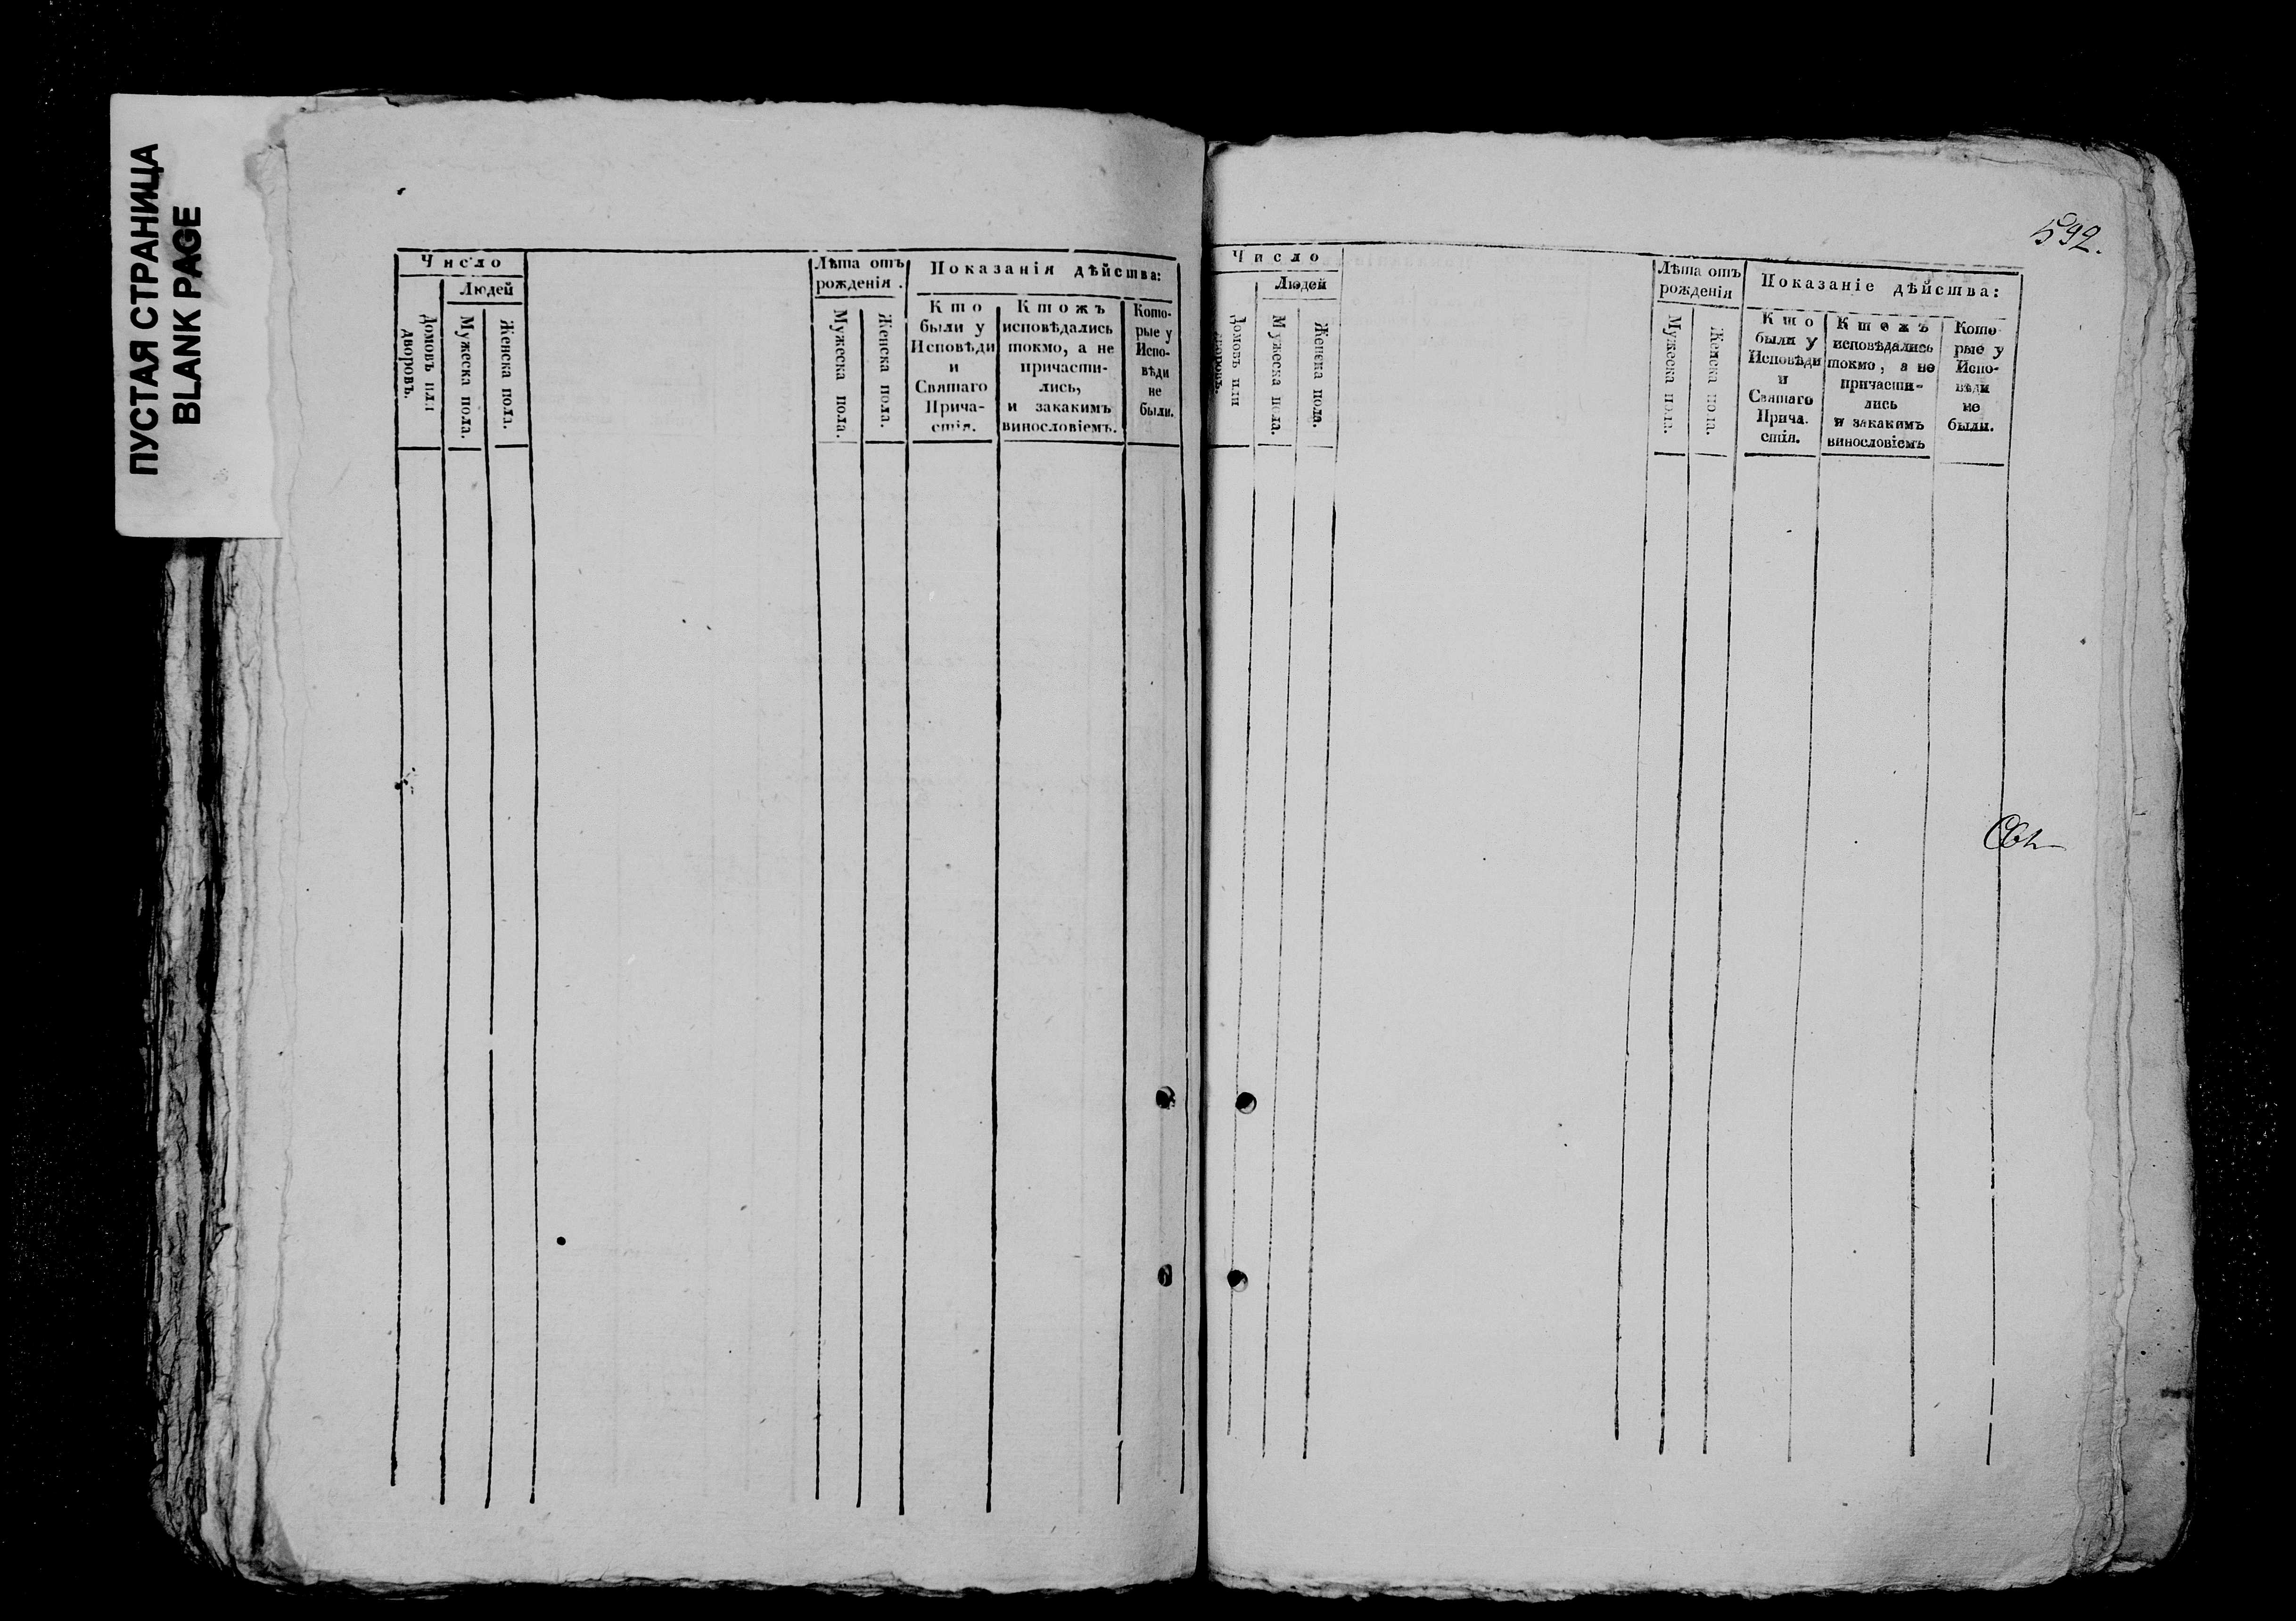 ПУСТАЯ СТРАНИЦА
BLANK PAGE
Число
Людей
Домовъ или
дворовъ.
Мужеска пола.
Женска пола.
Лѣта отъ
рожденія.
Мужеска пола.
Женска пола.
Показанія дѣйства:
Кто
были у
Исповѣди
и
Святаго
Прича-
стія.
Ктожъ
исповѣдались
токмо, а не
причасти-
лись,
и закакимъ
винословіемъ.
Кото-
рые у
Испо-
вѣди
не
были.
592.
Число
Людей
Домовъ или
дворовъ.
Мужеска пола.
Женска пола.
Лѣта отъ
рожденія
Мужеска пола.
Женска пола.
Показаніе дѣйства:
Кто
были у
Исповѣди
и
Святаго
Прича.
стія.
Ктожъ
исповѣдались
токмо, а не
причасти-
лись
и закакимъ
винословіемъ
Кото
рые у
Испо-
вѣди
не
были.